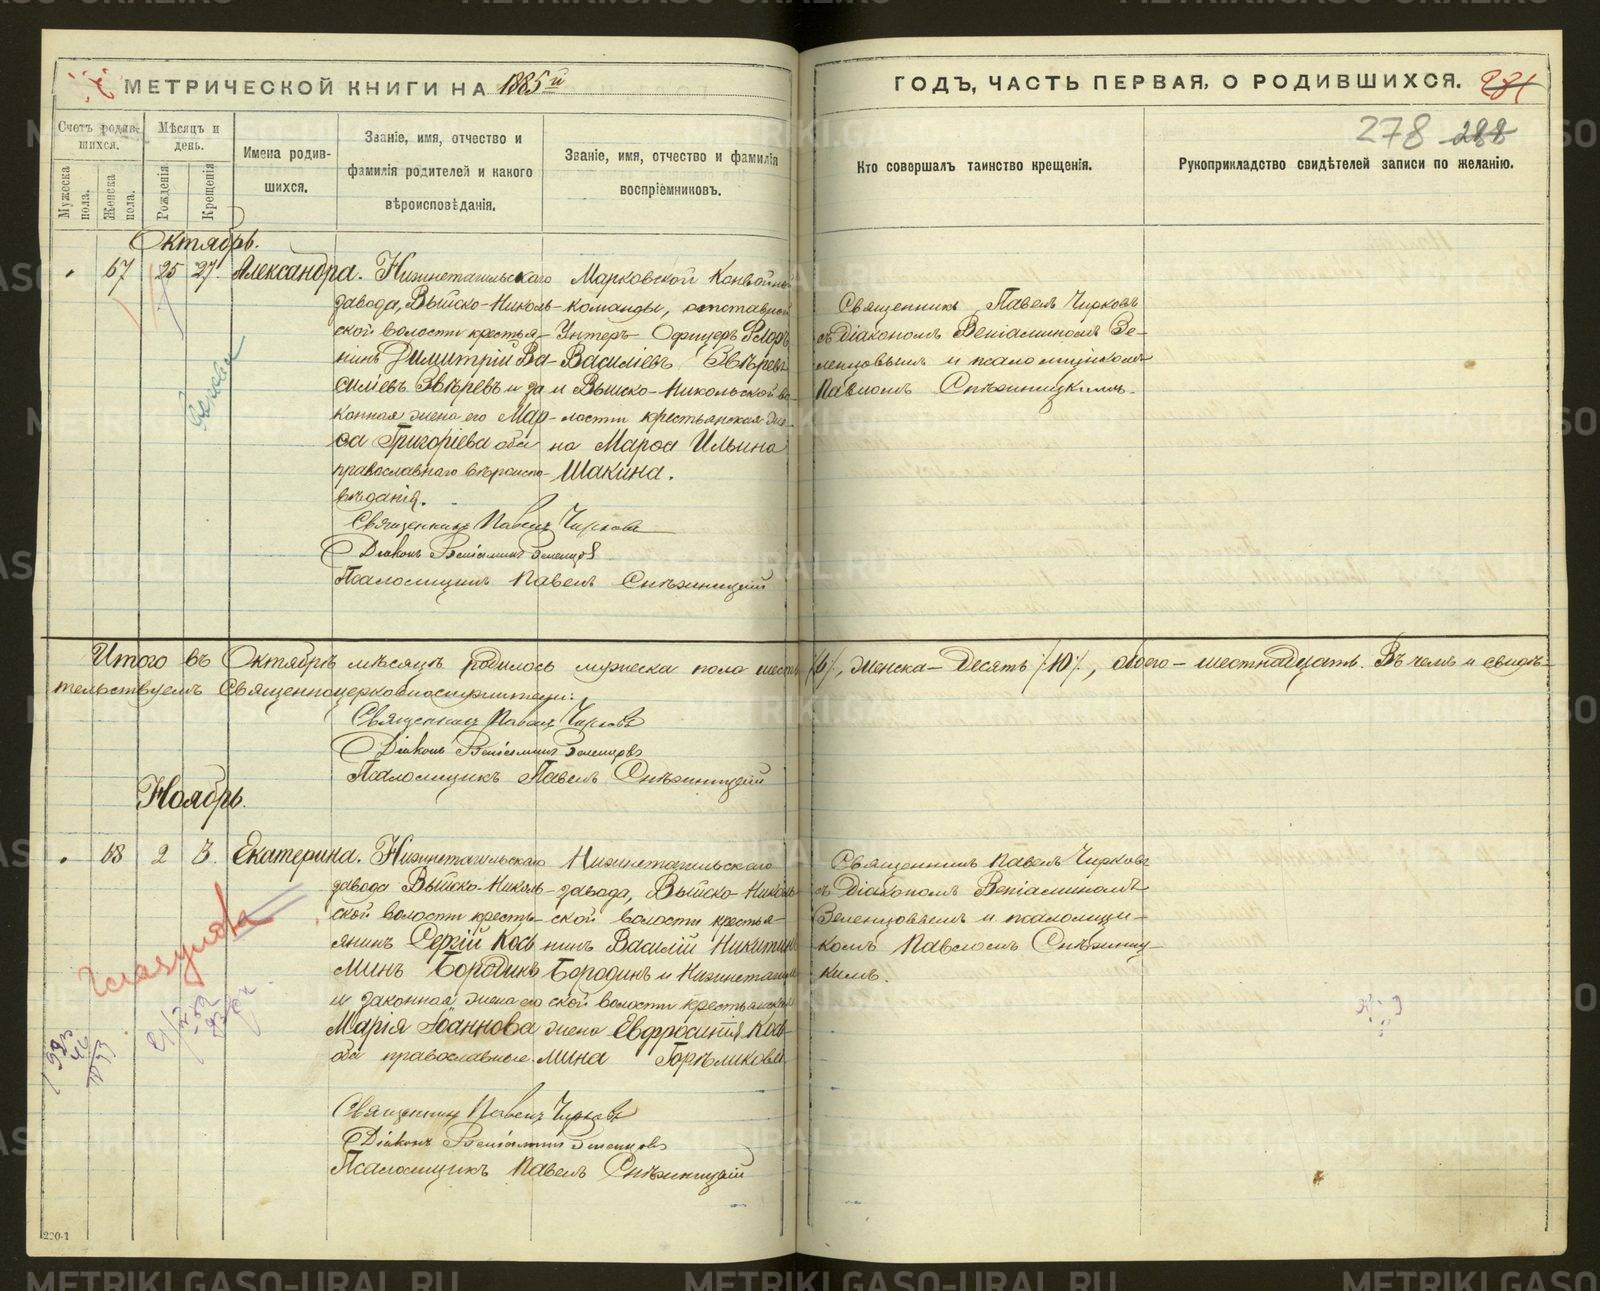 МЕТРИЧЕСКОЙ КНИГИ НА 1885й
ГОДЪ, ЧАСТЬ ПЕРВАЯ, О РОДИВШИХСЯ. 281
278 288
Счетъ родив-
шихся.
Мужеска пола.
Женска пола.
Мѣсяцъ и
день.
Рожденія
Крещенія
Имена родив-
шихся.
Званіе, имя, отчество и
фамилія родителей и какого
вѣроисповѣданія.
Званіе, имя, отчество и фамилія
воспріемниковъ.
Кто совершалъ таинство крещенія.
Рукоприкладство свидѣтелей записи по желанію.
Октябрь.
67 25 27 Александра.
Нижнетагильскаго
завода, Выйско-Николь-
ской волости крестья-
нинъ Димитрій Ва-
силіевъ Звѣревъ и за
конная жена его Мар-
ѳа Григоріева оба
православнаго вѣроиспо-
вѣданія.
Марковской Конвойной
команды, отставной
Унтеръ-Офицеръ Ѳлоръ
Василіевъ Звѣревъ
и Выйско-Никольской во
лости крестьянская же-
на Марѳа Ильина
Шакина.
Священникъ Павелъ Чирковъ
съ Діакономъ Веніаминомъ Зе-
ленцовымъ и псаломщикомъ
Павломъ Снѣжницкимъ.
Священникъ Павелъ Чирковъ
Діаконъ Веніаминъ Зеленцовъ
Псаломщикъ Павелъ Снѣжницкій
Итого въ Октябрѣ мѣсяцѣ родилось мужеска пола шесть /6/, женска - десять /10/, обоего - шестнадцать. Въ чемъ и свидѣ-
тельствуемъ Священноцерковнослужители:
Священникъ Павелъ Чирковъ
Діаконъ Веніаминъ Зеленцовъ
Псаломщикъ Павелъ Снѣжницкій
Ноябрь.
68 2 3. Екатерина.
Нижнетагильскаго
завода Выйско-Николь-
ской волости кресть-
янинъ Сергій Кось
минъ Бородинъ
и законная жена его
Марія Іоаннова
оба православные.
Нижнетагильскаго
завода, Выйско-Николь-
ской волости крестья-
нинъ Василій Никитинъ
Бородинъ и Нижнетагиль
ской волости крестьянская
жена Евфросинія Козь-
мина Горѣликова
Священникъ Павелъ Чирковъ
съ Діакономъ Веніаминомъ
Зеленцовымъ и псаломщи-
комъ Павломъ Снѣжниц-
кимъ.
Священникъ Павелъ Чирковъ
Діаконъ Веніаминъ Зеленцовъ
Псаломщикъ Павелъ Снѣжницкій
220-1
METRIKI.GASO-URAL.RU